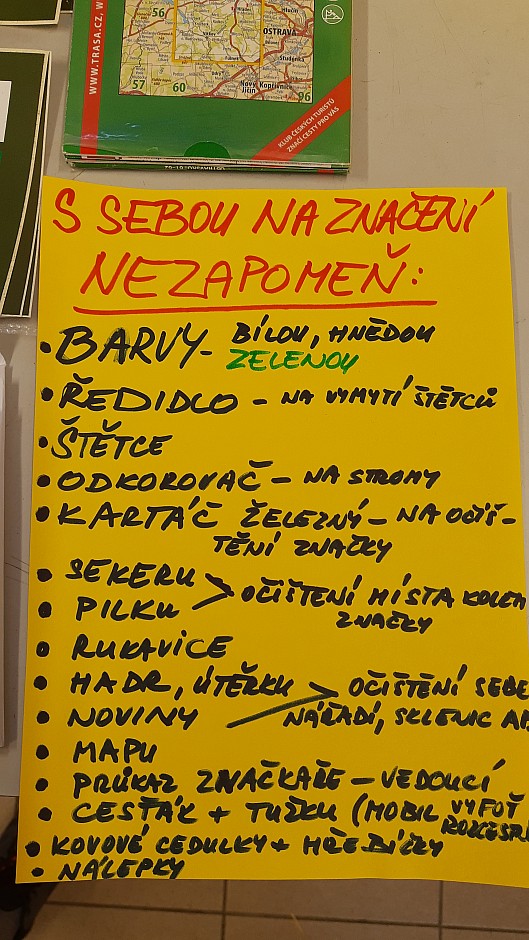 WWW.TRASA.CZ, W
56
OSTRAVA
Studénka
Nový Jičín
Kopřivnice
57
60
96
KLUB ČESKÝCH TURISTŮ
ZNAČÍ CESTY PRO VÁS
S SEBOU NA ZNAČENÍ
NEZAPOMEŇ:
• BARVY - BÍLOU, HNĚDOU
ZELENOU
• ŘEDIDLO - NA VYMYTÍ ŠTĚTCŮ
• ŠTĚTCE
• ODKOROVAČ - NA STROMY
• KARTÁČ ŽELEZNÝ - NA OČIŠ-
TĚNÍ ZNAČKY
• SEKERU > OČIŠTĚNÍ MÍSTA KOLEM
• PILKU ZNAČKY
• RUKAVICE
• HADR, ÚTĚRKU > OČIŠTĚNÍ SEBE
• NOVINY NÁŘADÍ, SKLENIC
• MAPU
• PRŮKAZ ZNAČKAŘE - VEDOUCÍ
• CESŤÁK + TUŽKU (MOBIL VYFOŤ
ROZCESP
• KOVOVÉ CEDULKY + HŘEBÍČKY
• NÁLEPKY